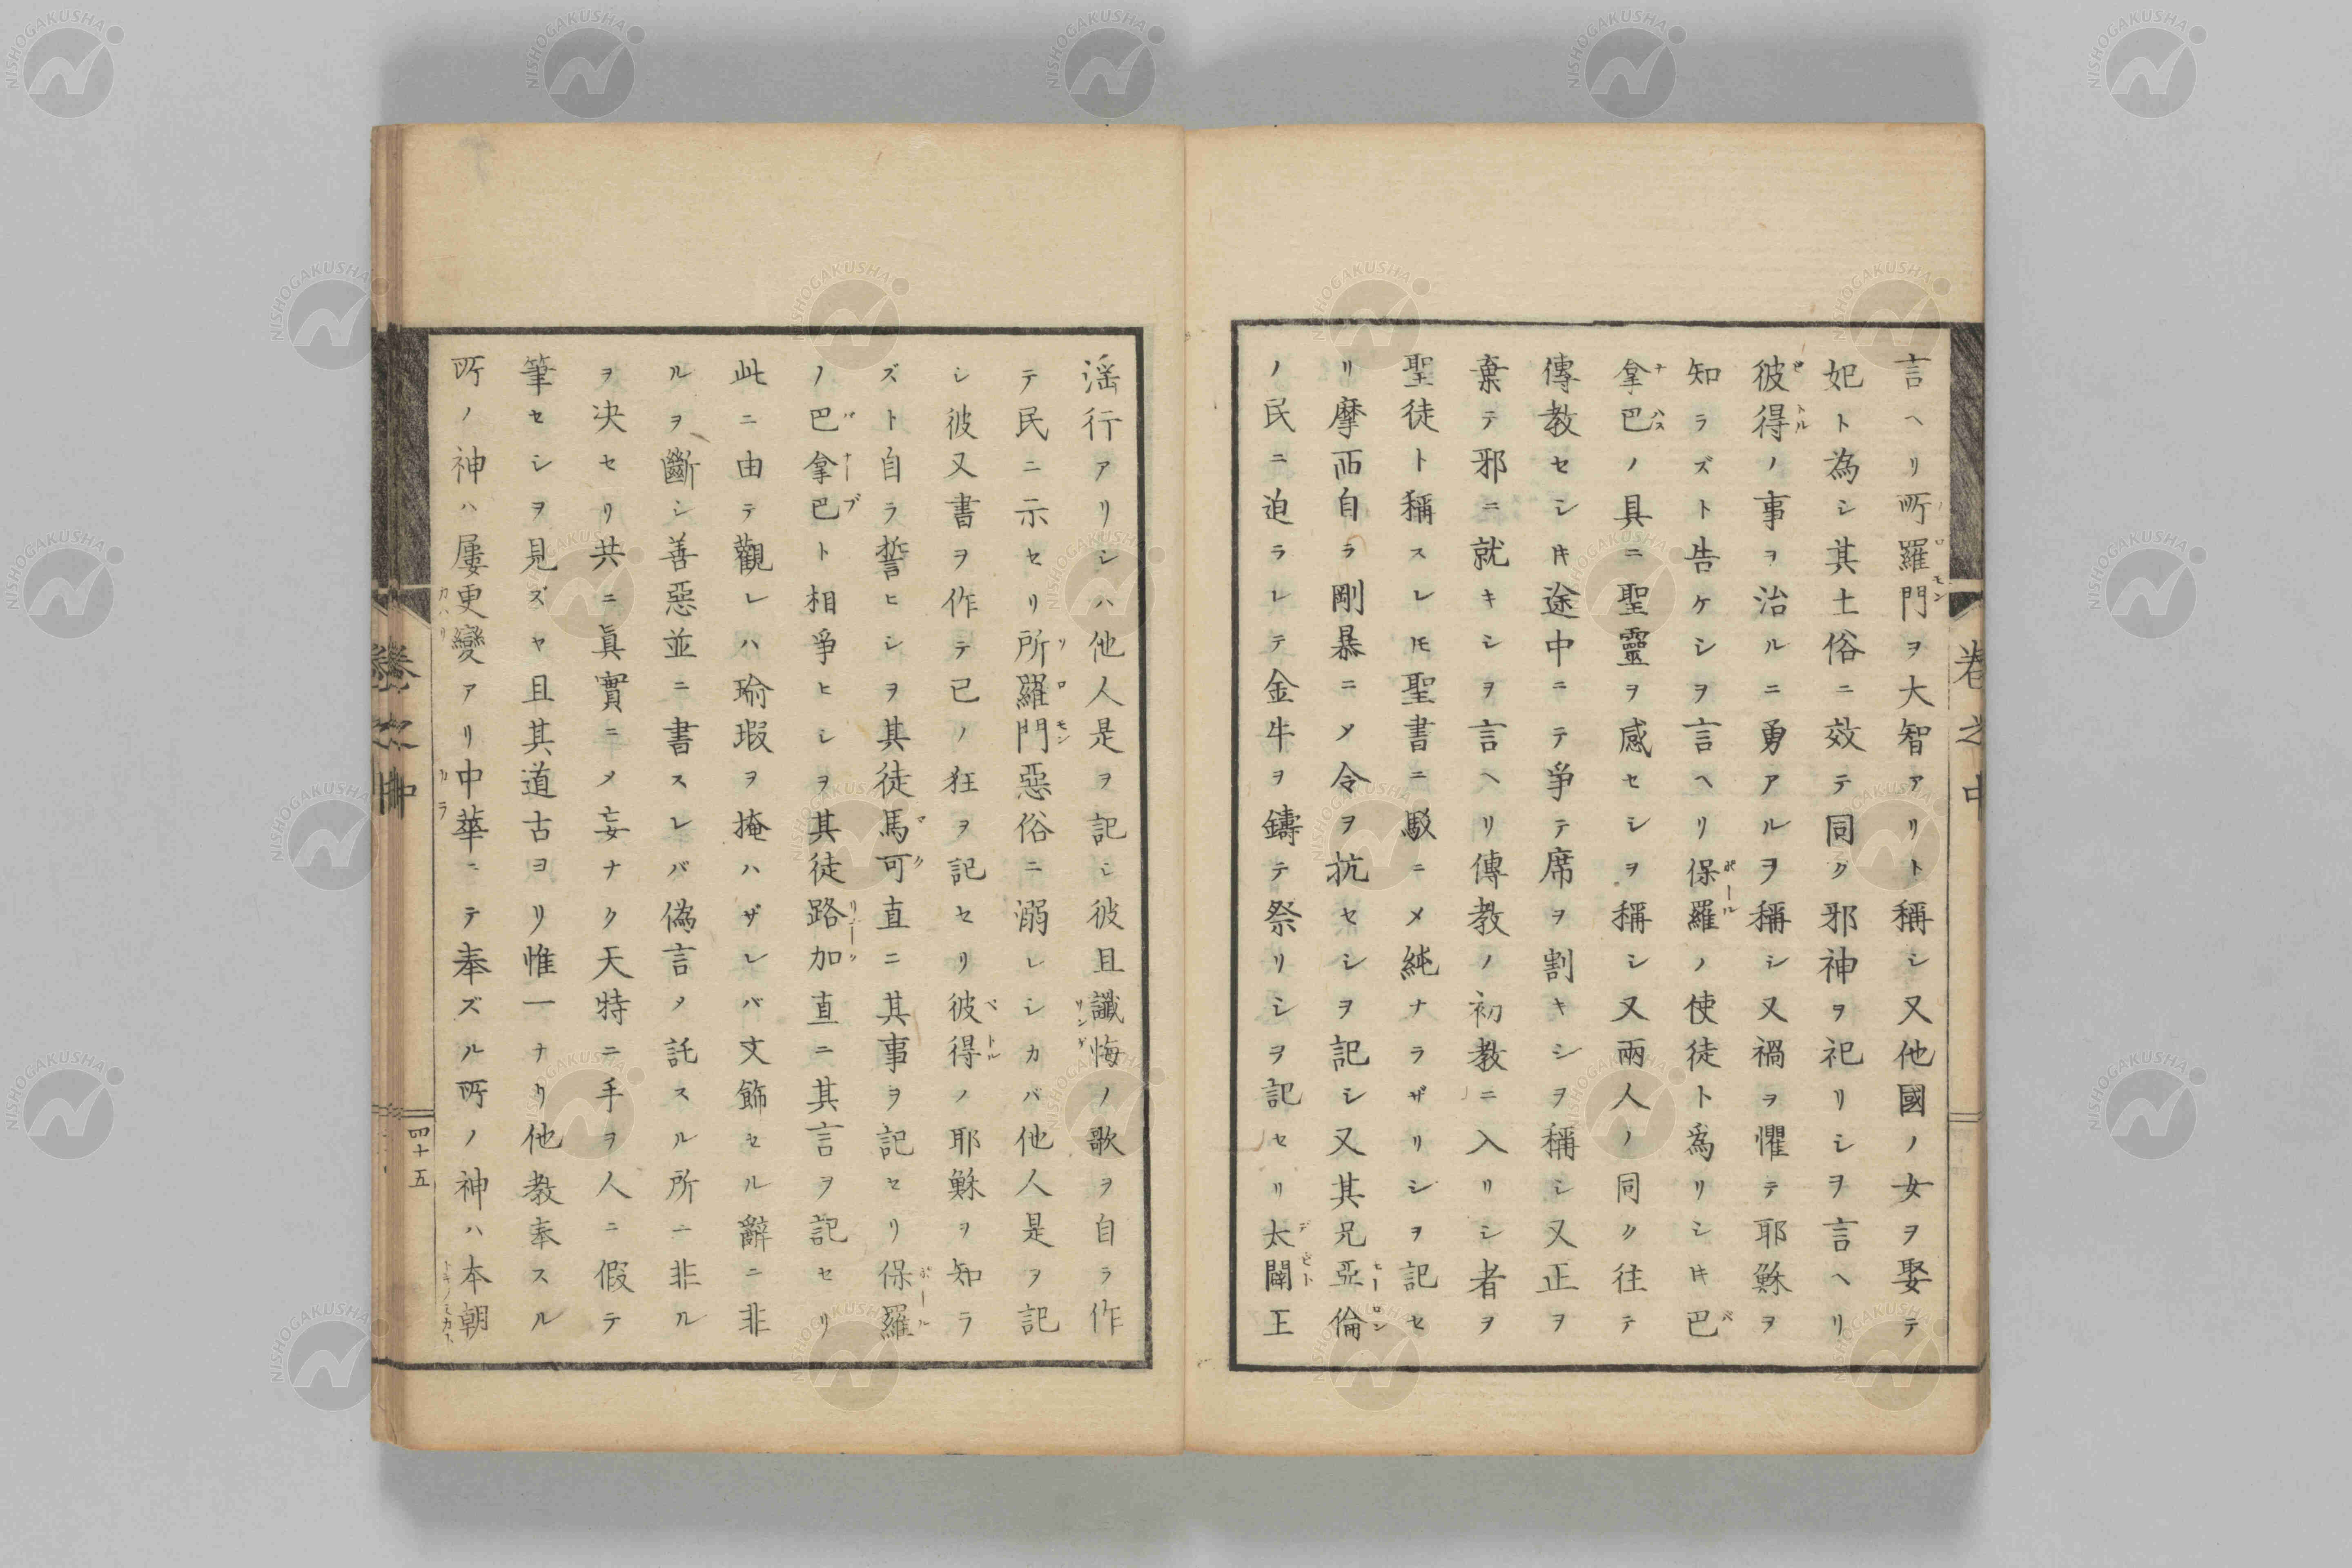 言ヘリ所羅門ヲ大智アリト稱シ又他國ノ女ヲ娶テ
妃ト為シ其土俗ニ效テ同ク邪神ヲ祀リシヲ言ヘリ
彼得ノ事ヲ治ルニ勇アルヲ稱シ又禍ヲ懼テ耶穌ヲ
知ラズト告ケシヲ言ヘリ保羅ノ使徒ト為リシ𪜈巴
拿巴ノ具ニ聖靈ヲ感セシヲ稱シ又兩人ノ同ク往テ
傳教セシ𪜈途中ニテ爭テ席ヲ割キシヲ稱シ又正ヲ
棄テ邪ニ就キシヲ言ヘリ傳教ノ初教ニ入リシ者ヲ
聖徒ト稱スレ𪜈聖書ニ駁ニメ純ナラザリシヲ記セ
リ摩西自ラ剛暴ニメ令ヲ抗セシヲ記シ又其兄亞倫
ノ民ニ迫ラレテ金牛ヲ鑄テ祭リシヲ記セリ太闢王
卷之中
淫行アリシハ他人是ヲ記シ彼且讖悔ノ歌ヲ自ラ作
テ民ニ示セリ所羅門惡俗ニ溺レシカバ他人是ヲ記
シ彼又書ヲ作テ已ノ狂ヲ記セリ彼得ノ耶穌ヲ知ラ
ズト自ラ誓ヒシヲ其徒馬可直ニ其事ヲ記セリ保羅
ノ巴拿巴ト相爭ヒシヲ其徒路加直ニ其言ヲ記セリ
此ニ由テ觀レハ瑜瑕ヲ掩ハザレバ文飾セル辭ニ非
ルヲ斷シ善惡並ニ書スレバ偽言ノ託スル所ニ非ル
ヲ決セリ共ニ眞實ニメ妄ナク天特ニ手ヲ人ニ假テ
筆セシヲ見ズヤ且其道古ヨリ惟一ナリ他教奉スル
所ノ神ハ屢更變アリ中華ニテ奉ズル所ノ神ハ本朝
卷之中
四十五
NISHOGAKUSHA